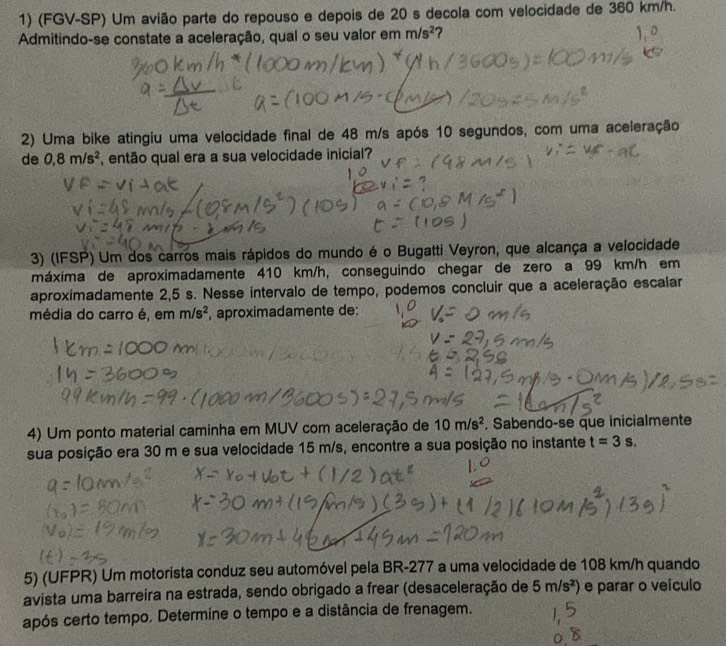 1) (FGV-SP) Um avião parte do repouso e depois de 20 s decola com velocidade de 360 km/h.
Admitindo-se constate a aceleração, qual o seu valor em m/s²?
1,0
360 km/h * (1000 m/km) * (1h/3600s) = 100 m/s
a = Δv/Δt
a = (100 m/s - 0 m/s) / 20s = 5 m/s²
2) Uma bike atingiu uma velocidade final de 48 m/s após 10 segundos, com uma aceleração
de 0,8 m/s², então qual era a sua velocidade inicial?
VF = (48 m/s)
vi = vf - at
1,0
VF = Vi + at
vi = ?
Vi = 48 m/s - (0,8 m/s²) (10s)
a = (0,8 m/s²)
Vi = 48 m/s - 8 m/s
t = (10s)
Vi = 40 m/s
3) (IFSP) Um dos carros mais rápidos do mundo é o Bugatti Veyron, que alcança a velocidade
máxima de aproximadamente 410 km/h, conseguindo chegar de zero a 99 km/h em
aproximadamente 2,5 s. Nesse intervalo de tempo, podemos concluir que a aceleração escalar
média do carro é, em m/s², aproximadamente de:
1,0
V₀ = 0 m/s
V = 27,5 m/s
1 km = 1000 m
t = 2,5s
1h = 3600s
A = (27,5 m/s - 0 m/s) / 2,5s =
99 km/h = 99 · (1000 m/3600s) = 27,5 m/s
= 11 m/s²
4) Um ponto material caminha em MUV com aceleração de 10 m/s². Sabendo-se que inicialmente
sua posição era 30 m e sua velocidade 15 m/s, encontre a sua posição no instante t = 3 s.
1,0
a = 10 m/s²
x = x₀ + v₀t + (1/2) at²
(x₀) = 30m
x = 30 m + (15 m/s) (3s) + (1/2) (10 m/s²) (3s)²
(V₀) = 15 m/s
x = 30m + 45m + 45m = 120m
(t) = 3s
5) (UFPR) Um motorista conduz seu automóvel pela BR-277 a uma velocidade de 108 km/h quando
avista uma barreira na estrada, sendo obrigado a frear (desaceleração de 5 m/s²) e parar o veículo
após certo tempo. Determine o tempo e a distância de frenagem.
1,5
0,8